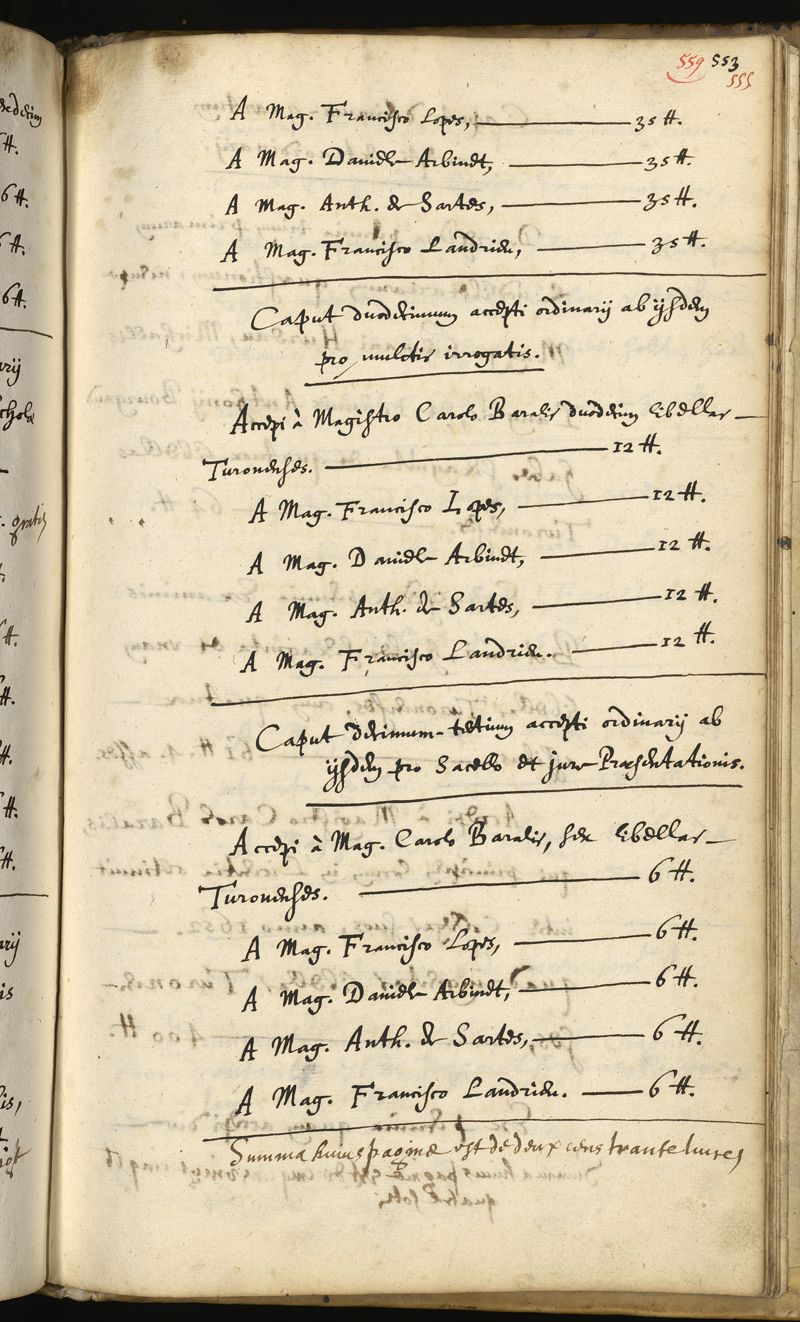 559 553
555
A Mag. Francisco Lopes, 35 ℔.
A Mag. Daniele Arbinet, 35 ℔.
A Mag. Anth. de Sartes, 35 ℔.
A Mag. Francisco Landrieu, 35 ℔.
Caput duodecimum accepti ordinarij ab ijsdem
pro mulctis irrogatis.
Accepi à Magistro Carolo Baralis duodecim libellas
Turonenses. 12 ℔.
A Mag. Francisco Lopes, 12 ℔.
A Mag. Daniele Arbinet, 12 ℔.
A Mag. Anth. de Sartes, 12 ℔.
A Mag. Francisco Landrieu. 12 ℔.
Caput decimum-tertium accepti ordinarij ab
ijsdem pro Sacello et jure Præsentationis.
Accepi à Mag. Carolo Baralis, sex libellas
Turonenses. 6 ℔.
A Mag. Francisco Lopes, 6 ℔.
A Mag. Daniele Arbinet, 6 ℔.
A Mag. Anth. de Sartes, 6 ℔.
A Mag. Francisco Landrieu. 6 ℔.
Summa huius paginæ est de deux cens trante liures